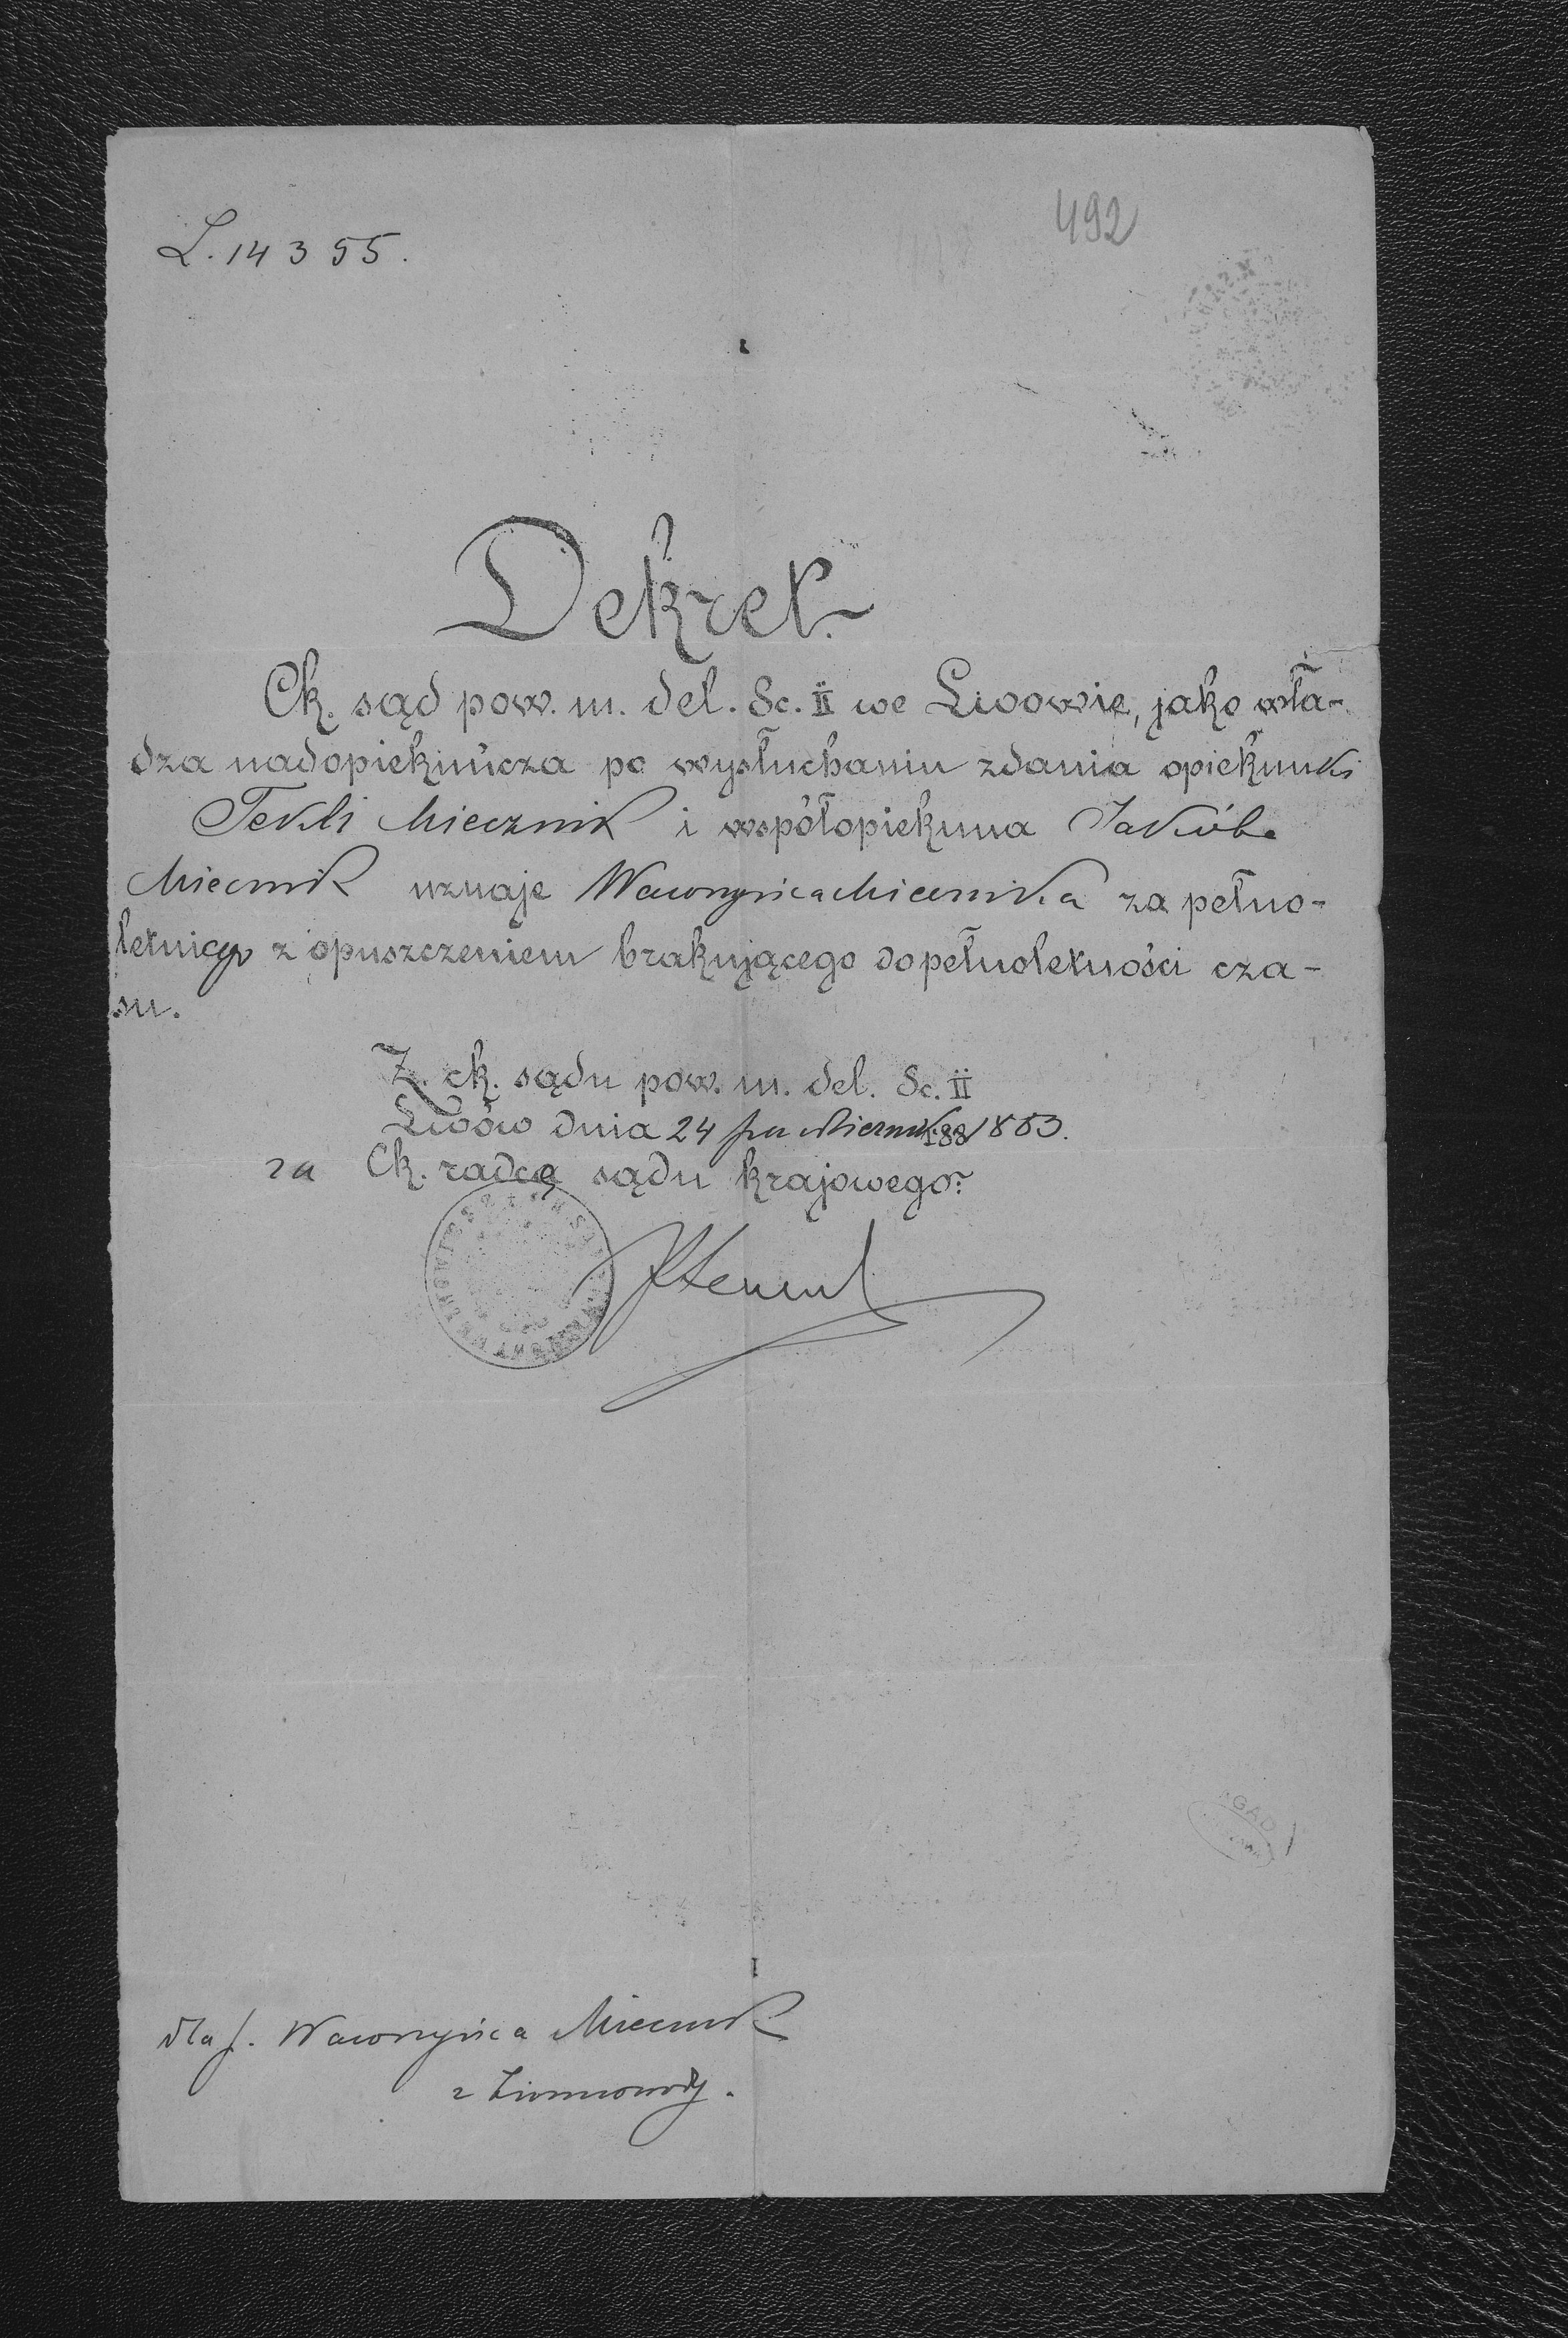 L. 14355.
492
Dekret.
Ck. sąd pow. m. del. Sc. II we Lwowie, jako wła-
dza nadopiekuńcza po wysłuchaniu zdania opiekunki
Tekli Miecznik i współopiekuna Jakóba
Miecznik uznaje Wawrzyńca Miecznika za pełno-
letniego z opuszczeniem brakującego do pełnoletności cza-
su.
Z. ck. sądu pow. m. del. Sc. II
Lwów dnia 24 października 188 1883.
za Ck. radcę sądu krajowego:
AGAD
dla p. Wawrzyńca Miecznik
z Zimnowody.